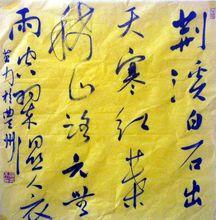 荆溪白石出
天寒红葉
稀山路元無
雨空翠湿人衣
於豊州